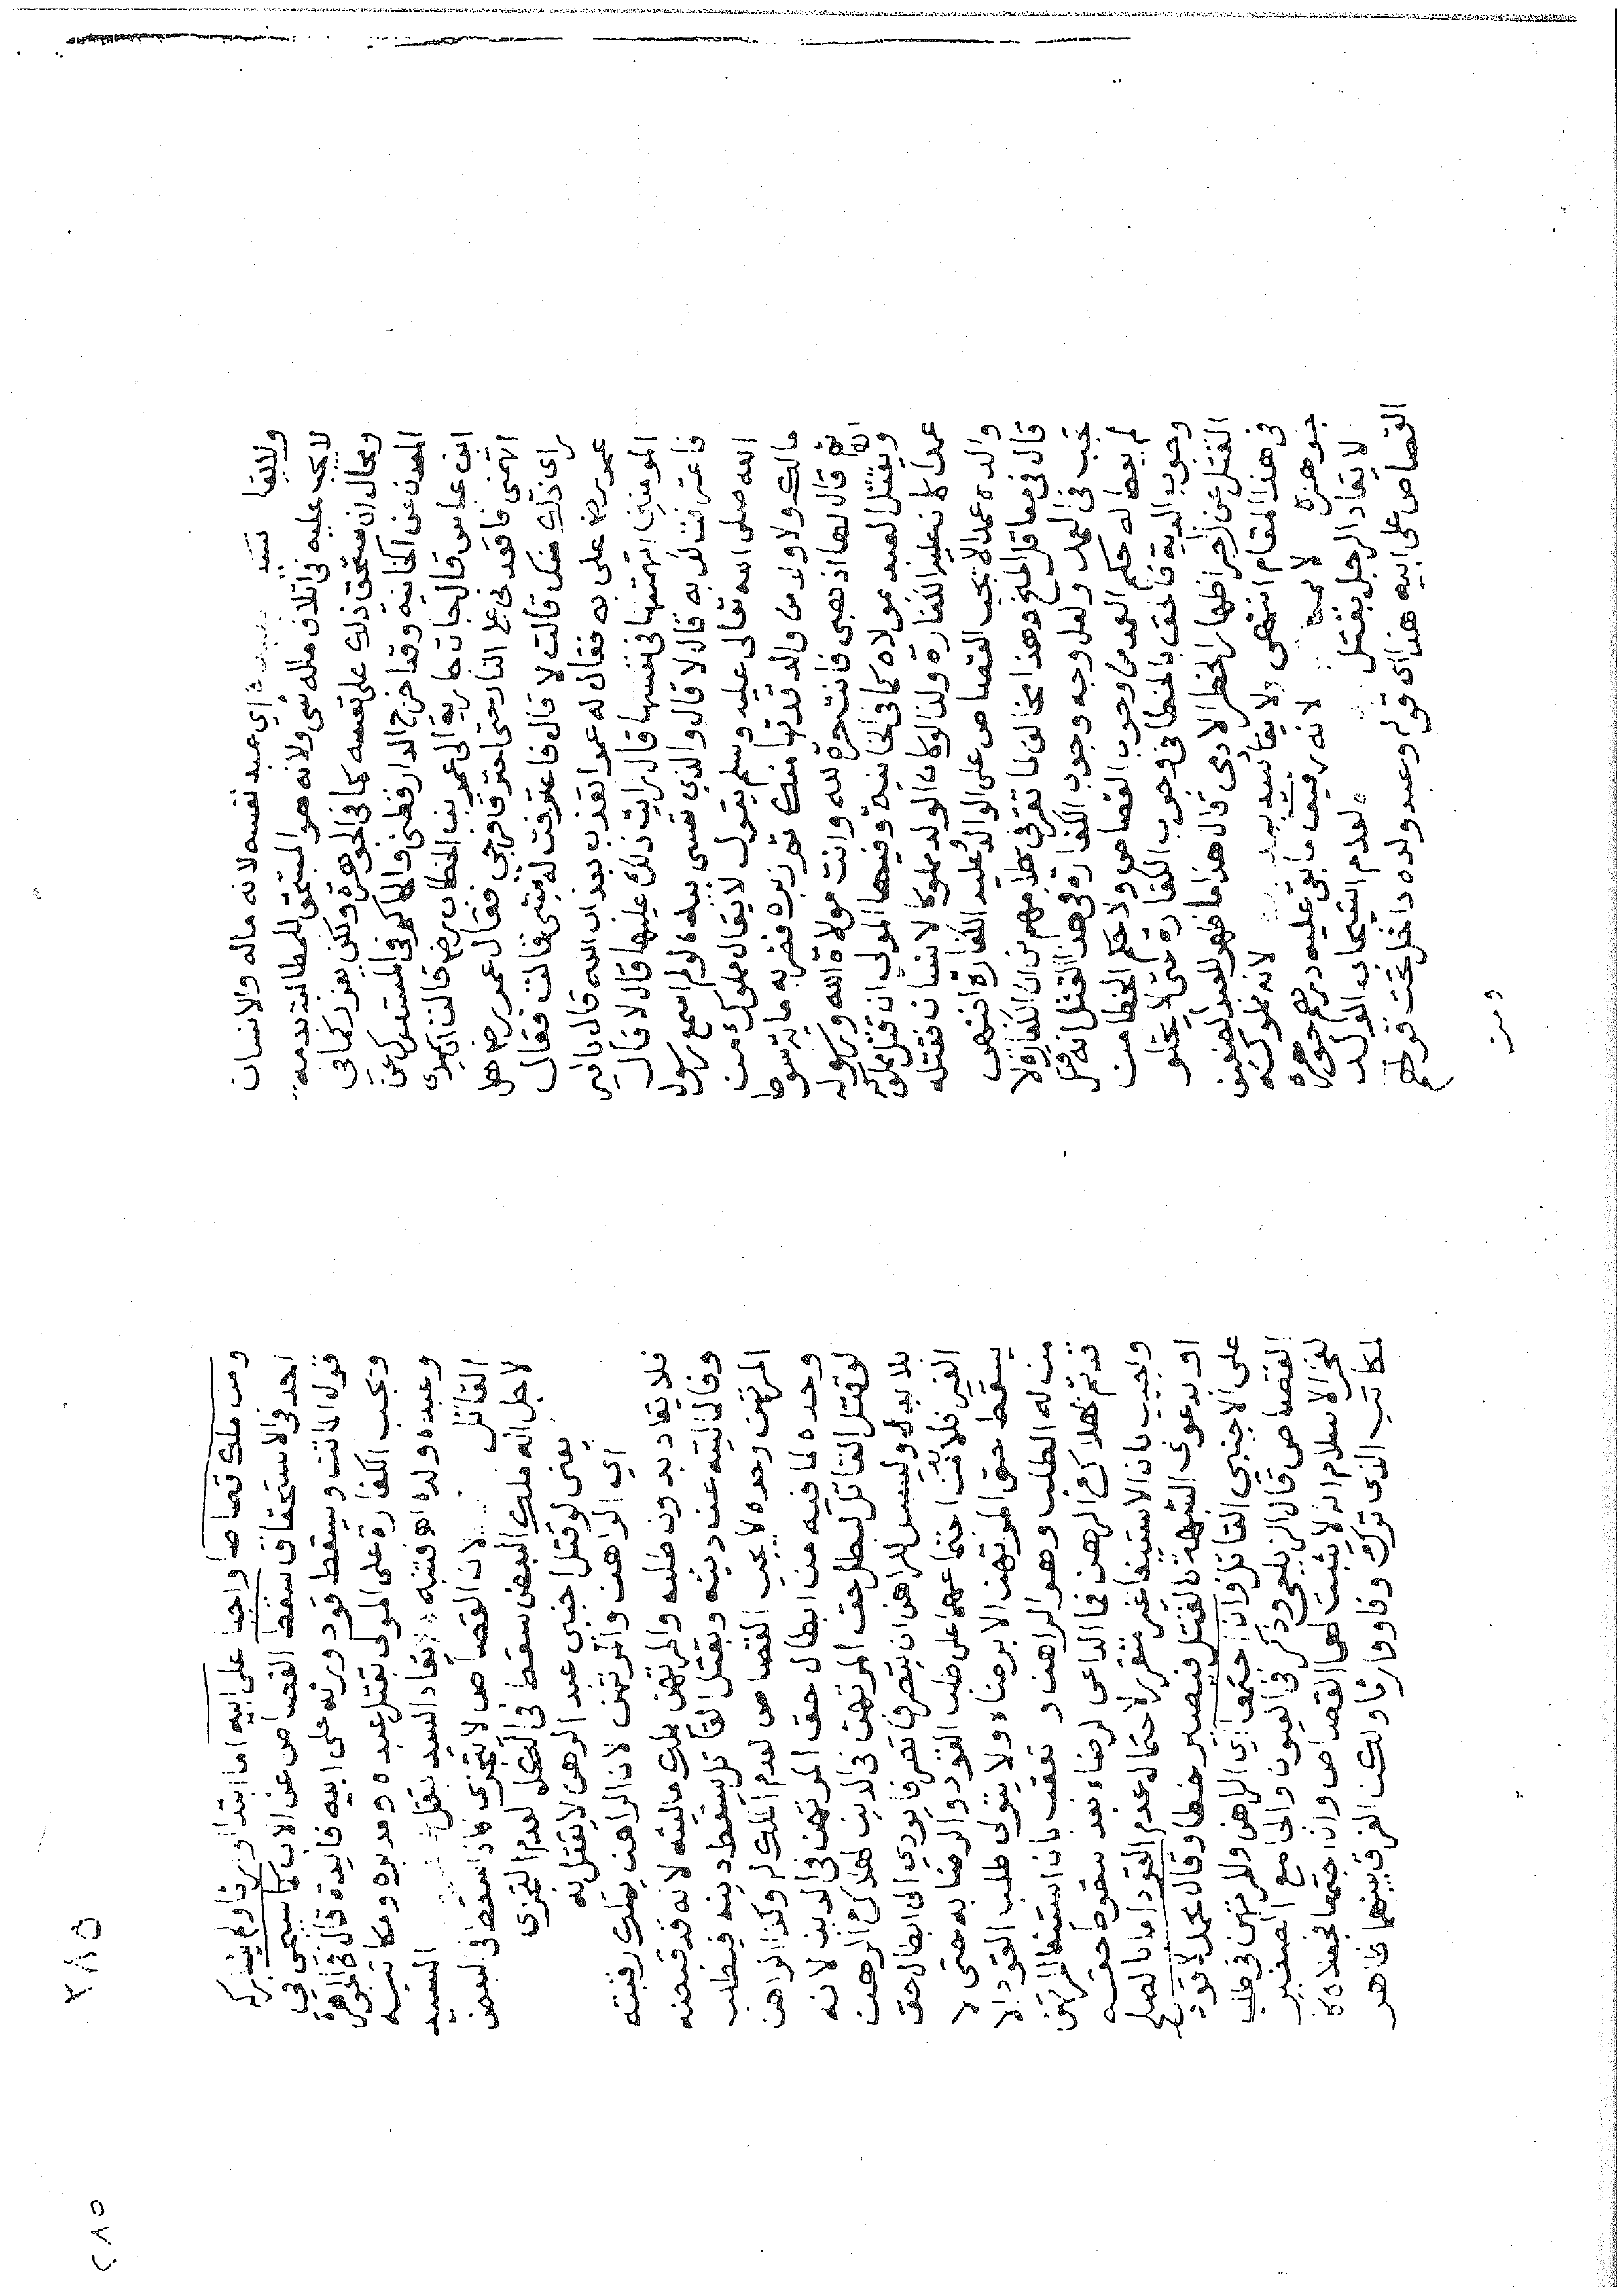 ولايقا سيد اي عبد نفسه لانه ماله والانسان
لا يجب عليه في اتلاف ماله شي ولانه هو المستحق للمطالبة بدمه
ومحال ان يستحق ذلك على نفسه كما في الجوهرة ولكن يعزر كما في
المعدن عن الخانية وقد اخرج الدارقطني والحاكم في المستدرك عن
ابن عباس قال جات جارية الى عمر بن الخطاب رضه قالت ان سيدي
اتهمني فاقعدني على النار حتى احترق فرجي فقال عمر رضه هل
راى ذلك منك قالت لا قال فاعترفت له بشي قالت فقال
عمر رضه علي به فقال له عمر اتعذب بعذاب الله قال يا امير
المومنين اتهمتها في نفسها قال رايت ذلك عليها قال لا قال
فاعترفت لك به قال لا قال والذي نفسي بيده لو لم اسمع رسول
الله صلى الله تعالى عليه وسلم يقول لا يقاد مملوك من
مالك ولا ولد من والد منك ثم فضربه ماية سوط
ثم قال لها اذهبي فانت حرة لله وانت مولاة الله ورسوله
ويقتل العبد بمولاه كما في الخانية وفيها المولى ان قتل مملوكه
عمدا كان عليه الكفارة ولذا لو كان الولد مملوكا لانسان فقتله
والده عمدا لا يجب القصاص على الوالد وعليه الكفارة انتهى
قال في معاقل المنح وهذا مخالف لما تقرر في كلامهم من ان الكفارة لا
تجب في العمد ولعل وجه وجوب الكفارة في هذا القتل انه قتل
لم يعط له حكم العمد من وجوب القصاص ولا حكم الخطا من
وجوب الدية فالحق بالخطا في وجوب الكفارة حتى لا يخلو
القتل عن الجبر اظهارا لخطر الادمي قال هذا ما ظهر للعبد الضعيف
في هذا المقام انتهى ولا يقاد سيد لانه مملوكه
جوهرة لانه رقيق ما بقي عليه درهم جوهره
لا يقاد الرجل بقتل لعدم استيجاب الولد
القصاص على ابيه هذا اي قوله وعبد ولده داخل تحت قولهم
ومن
٣٨٥
٢٨٥
ومن ملك قصاصا واحدا على ابيه اما ابتدا او ارثا ولم يشركه
احد في الاستحقاق سقط القصاص عن الاب كما سيجي في
قول الماتن ويسقط قود ورثه على ابيه فايدة قال في الجوهرة
وتجب الكفارة على المولى بقتل عبده ومدبره ومكاتبه
وعبد ولده اهـ قنيه يقاد السيد بقتل السيد
القاتل لان القصاص لا يتجزى فاذا سقط في البعض
لاجل انه ملك البعض سقط في الكل لعدم التجزى
يعني لو قتل اجنبي عبد الرهن لا يقتل به
اي الراهن والمرتهن لان الراهن يملك رقبته
فلا يقاد بدون طلبه والمرتهن ملك ماليته لانه قد قبضه
وفا لماليته عند دينه وبقتل القاتل يسقط دينه فيطلب
المرتهن وحده لا يجب القصاص لعدم الملك له وكذا الراهن
وحده لما فيه من ابطال حق المرتهن في الدين لانه
لو قتل القاتل لبطل حق المرتهن في الدين لهلاك الرهن
بلا بدل وليس للراهن ان يتصرف تصرفا يودي الى ابطال حق
الغير فلابد من اجتماعهما على طلب القود والرضا به حتى لا
يسقط حق المرتهن الا برضاه ولا يتولى طلب القود الا
من له الطلب وهو الراهن وتعقب بان استيفا المرتهن
قد تم بهلاك الرهن فما الداعي لرضاه بعد سقوط حقه
واجيب بان الاستيفا غير متقرر لاحتمال عدم القود اما بالصلح
او بدعوى الشبهة بالقتل فيصير خطا وقال محمد لا قود
على الاجنبي القاتل وان اجتمعا اي الراهن والمرتهن في طلب
القصاص قال الزيلعي وذكر في العيون والجامع الصغير
لفخر الاسلام انه لا يثبت لهما القصاص وان اجتمعا فجعلاه كا
لمكاتب الذي ترك وفا ووارثا ولكن الفرق بينهما ظاهر